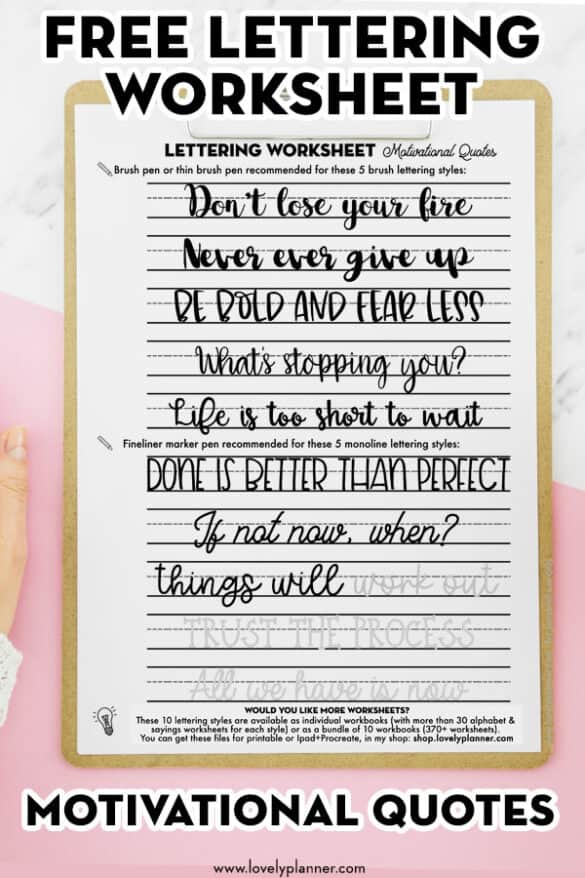 FREE LETTERING
WORKSHEET
LETTERING WORKSHEET Motivational Quotes
Brush pen or thin brush pen recommended for these 5 brush lettering styles:
Don't lose your fire
Never ever give up
BE BOLD AND FEAR LESS
What's stopping you?
Life is too short to wait
Fineliner marker pen recommended for these 5 monoline lettering styles:
DONE IS BETTER THAN PERFECT
If not now, when?
things will work out
TRUST THE PROCESS
All we have is now
WOULD YOU LIKE MORE WORKSHEETS?
These 10 lettering styles are available as individual workbooks (with more than 30 alphabet &
sayings worksheets for each style) or as a bundle of 10 workbooks (370+ worksheets).
You can get these files for printable or Ipad+Procreate, in my shop: shop.lovelyplanner.com
MOTIVATIONAL QUOTES
www.lovelyplanner.com